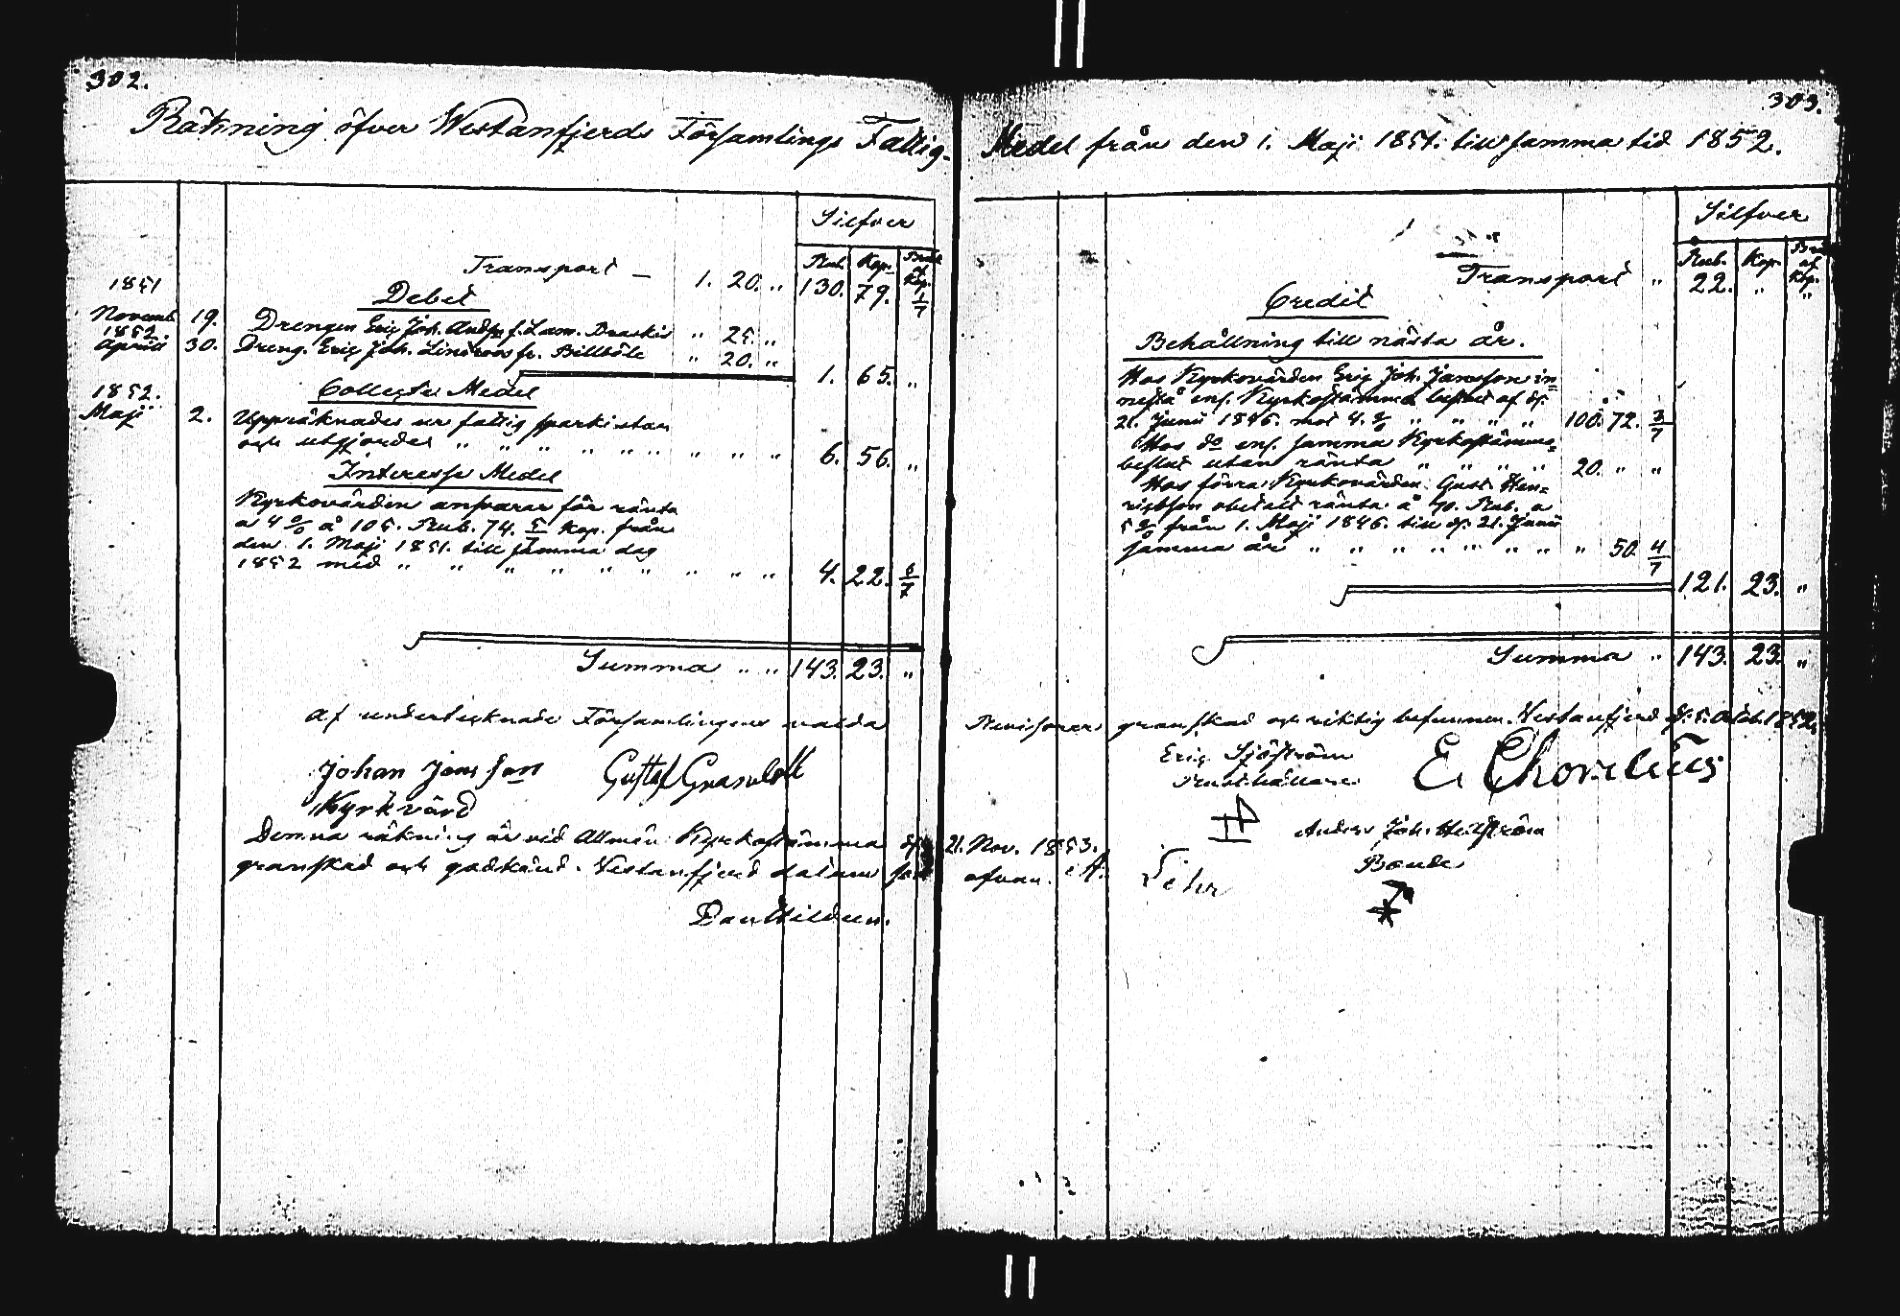 302.
Räkning öfver Westanfjerds Församlings Fattig-
Silfver
Rub. Kop. Bråk af Kop.
Transport — 1. 20. „ 130. 79. 1/7
1851 Debet
Novemb. 19. Drengen Erig Joh. Anders f. Lam. Draskis „ 25. „
1852
Aprill 30. Dreng. Erig Joh. Lindroos fr. Billböle „ 20. „
1. 65. „
1852. Collecte Medel
Maji 2. Uppräknades ur fattig sparkistan
och utgjordes „ „ „ „ „ „ „ „ „ 6. 56. „
Interesse Medel
Kyrkovärden ansvarar för ränta
a 4 % å 105. Rub. 74. 5/7 Kop. från
den 1. Maji 1851. till samma dag
1852 med „ „ „ „ „ „ „ „ „ 4. 22. 6/7
Summa „ „ 143. 23. „
af undertecknade Församlingens valda
Johan Jansson Gustaf
Kyrkvärd
Denna räkning är vid Allmän Kyrkostämma d.
granskad och godkänd. Westanfjerd datum som
303.
Medel från den 1. Maji 1851. till samma tid 1852.
Silfver
Rub. Kop. Bråk af Kop.
Transport „ 22. „ „
Credit
Behållning till nästa år.
Hos Kyrkovärden Erig Joh. Jansson in=
nestå enl. Kyrkostämmo beslut af d.
21. Junii 1846. mot 4. % „ „ „ „ 100. 72. 3/7
Hos do enl. samma Kyrkostämmo=
beslut utan ränta „ „ „ „ 20. „ „
Hos förra Kyrkovärden Gust. Hen=
riksson obetalt ränta å 70. Rub. a
5 % från 1. Maji 1846. till d. 21. Junii
samma år „ „ „ „ „ „ „ „ 50. 4/7
121. 23. „
Summa „ 143. 23. „
Revisorer granskad och riktig befunnen. Westanfjerd d. 5. Octob. 1852.
Erig Sjöström E. Chorelius
Rusthållare
Anders Joh. Hellström
21. Nov. 1853.
Bonde
ofvan.